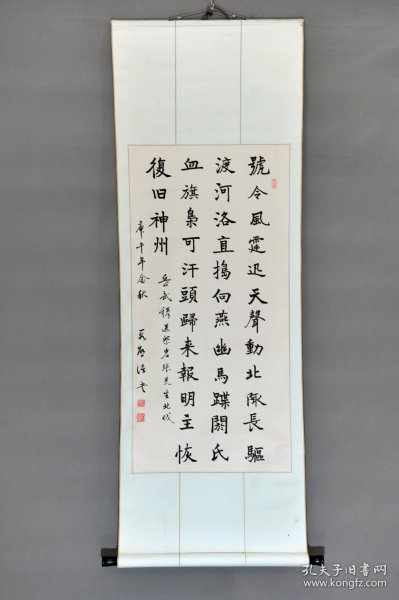 號令風霆迅天聲動北陬長驅
渡河洛直搗向燕幽馬蹀閼氏
血旗梟可汗頭歸来報明主恢
復旧神州
岳武穆送紫岩張先生北伐
庚午年金秋
孔夫子旧书网
www.kongfz.com